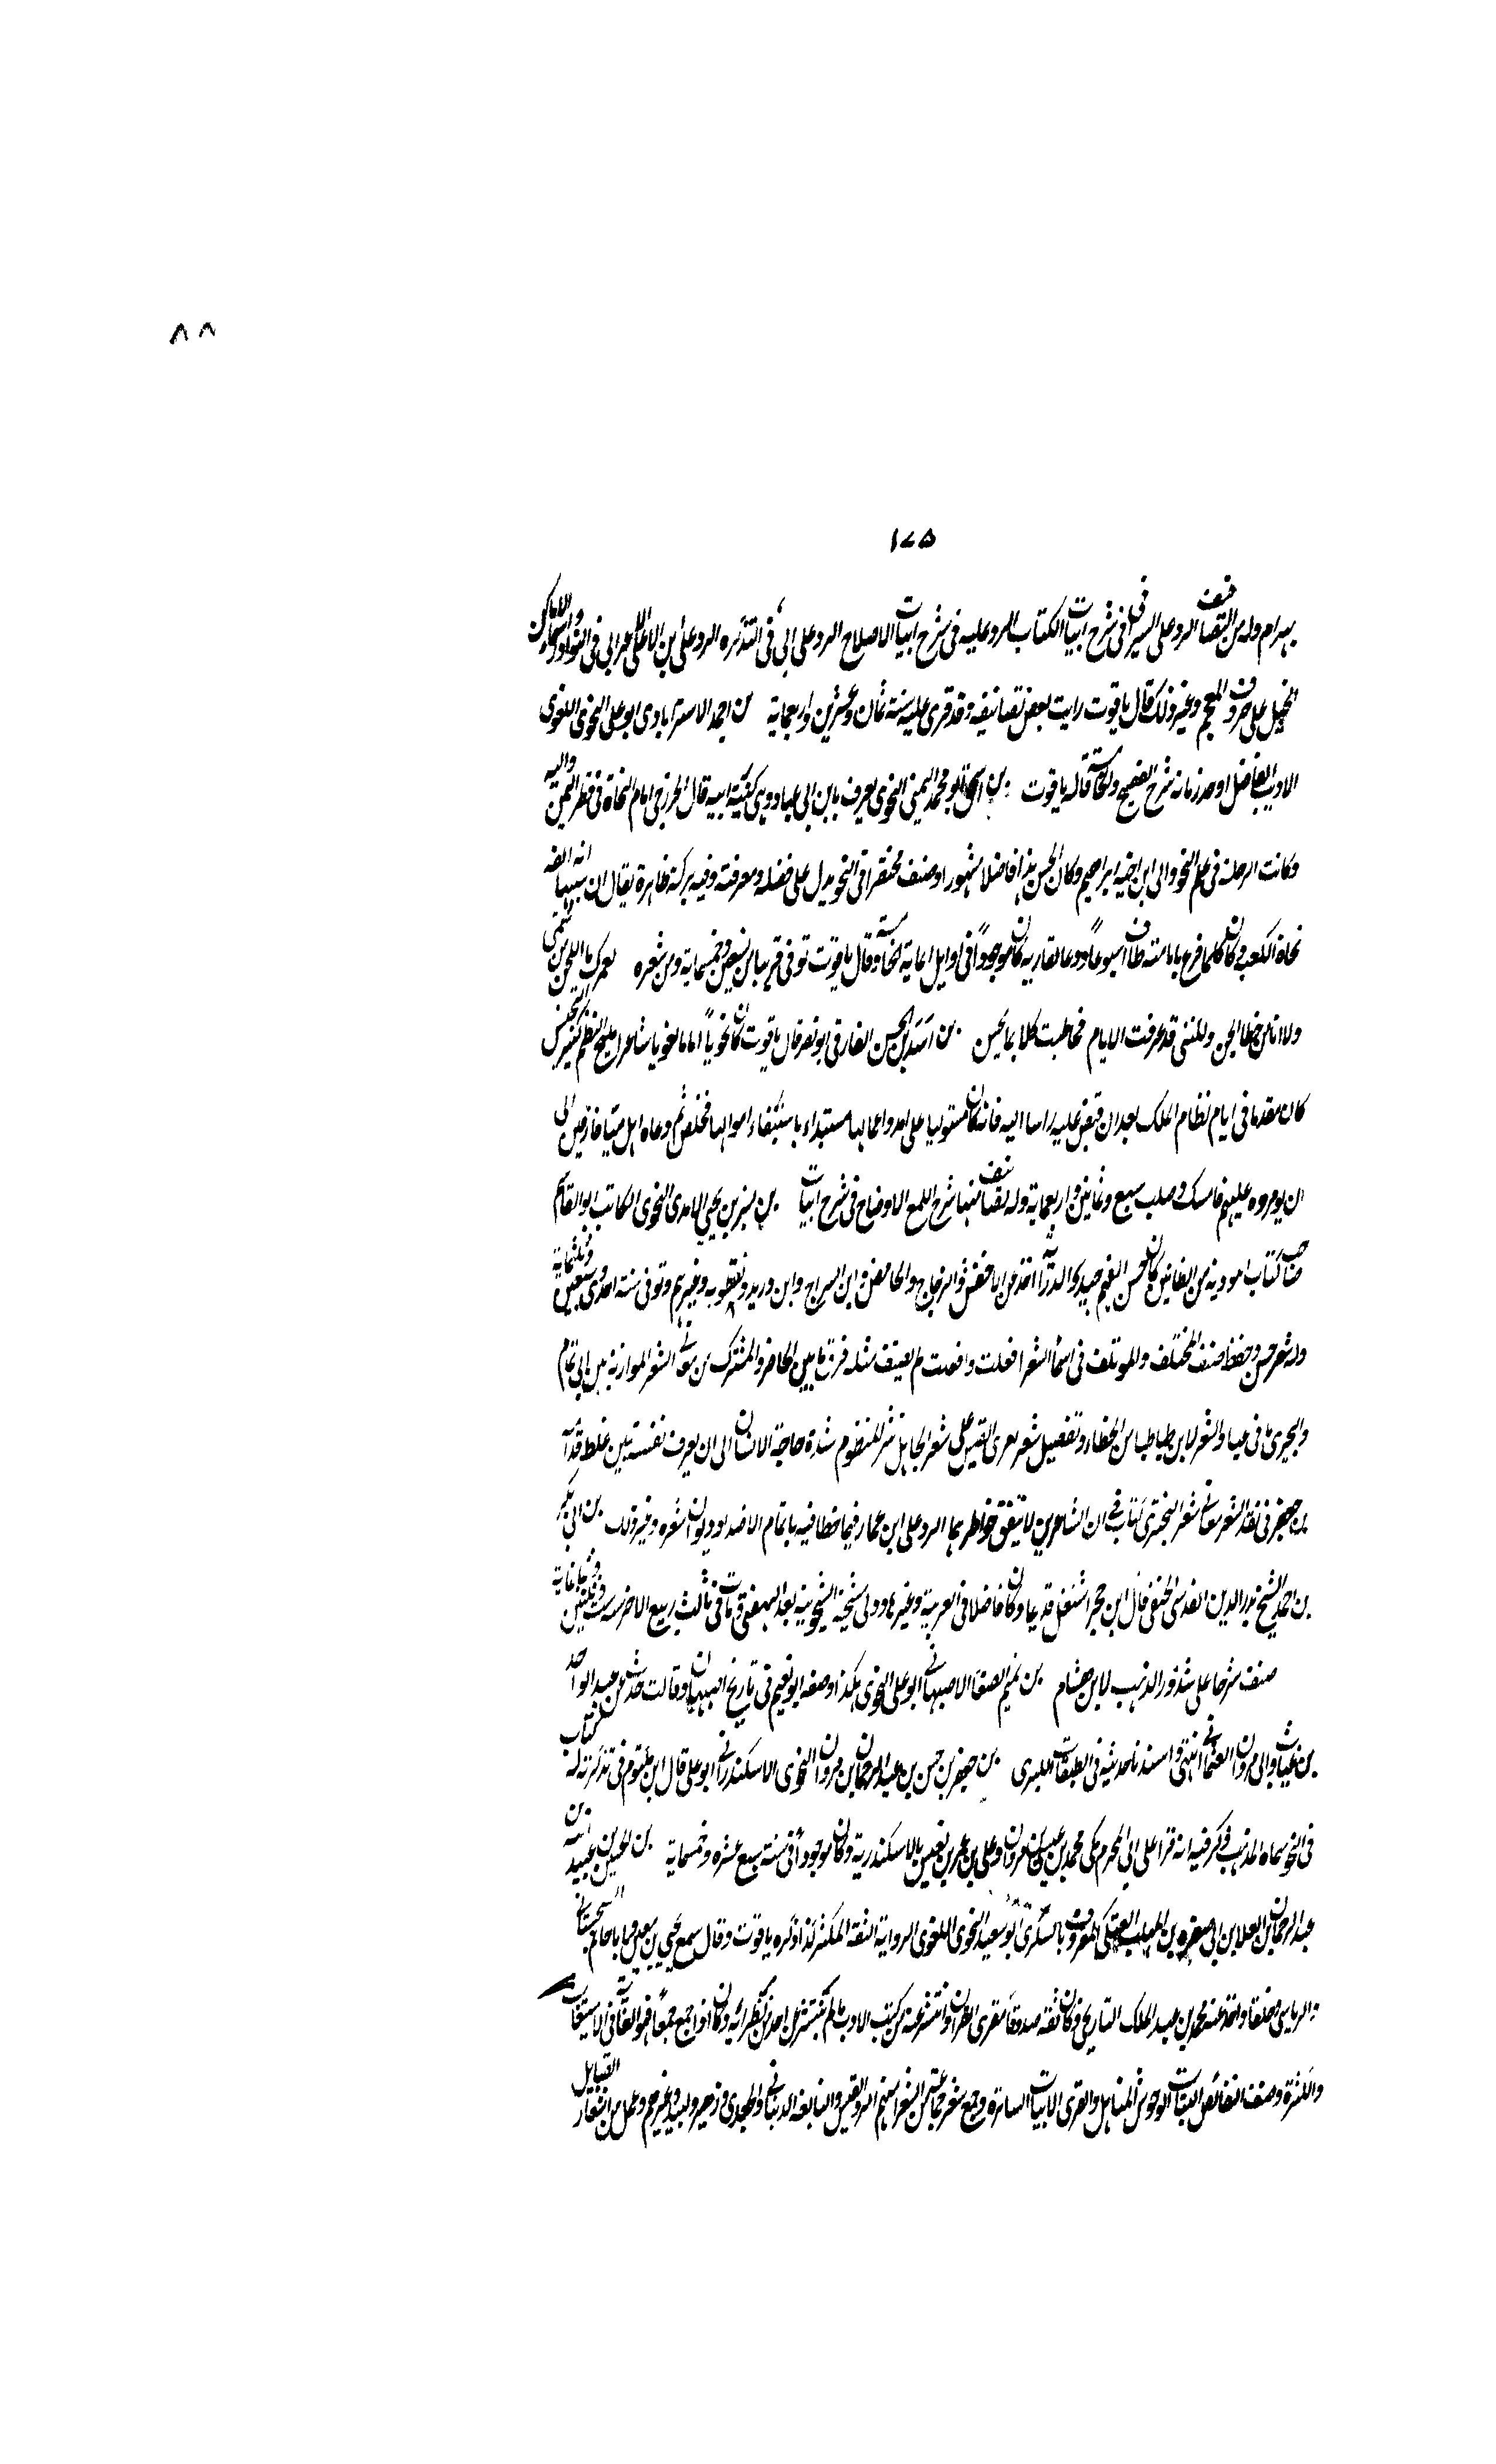 ٨٨
١٧٥
بهرام وله من التصانيف الرد على السيرافي في شرح ابيات الكتاب الرد عليه في شرح ابيات الاصلاح الرد على ابي في التذكره الرد على ابن الاعرابي في النوادر واسماء الاماكن
الخيل على حروف المعجم وغير ذلك قال ياقوت رايت بعض تصانيفه وقد قرى عليه سنة ثمان وعشرين واربعماية من احمد الاستراباذى ابو على النحوى اللغوى
الاديب الفاضل اوحد زمانه شرح الفصيح والحماسة قاله ياقوت بن اسحاق ابو محمد اليمنى النحوى يعرف بابن ابي عباد وهي كنية ابيه قال الخزرجي امام النحاة فى قطر اليمن واليه
وكانت الرحلة فى علم النحو والى ابن اخيه ابراهيم وكان الحسن هذا فاضلا مشهورا وصنف مختصرا فى النحو يدل على فضله ومعرفته وفيه بركة ظاهرة يقال ان سببها انه الفه
تجاه الكعبة وكان كلما فرغ بابا منه طاف اسبوعاً ودعا لقاريه كان موجوداً فى اوايل الماية الخامسة وقال ياقوت توفى قريبا من تسعين وخمسماية ومن شعره لعمرك ما اللحن من شيمتى
ولا انا من خطا الحن ولكننى قد عرفت الايام فخاطبت كلا بما يحسن بن اسد بن الحسن الفارقى ابو نصر قال ياقوت كان نحوياً اماما لغويا شاعرا مليح النظم كثير التجنيس
كان مقدما فى ايام نظام الملك بعد ان قبض عليه واسا اليه فانه كان مستوليا على امد واعمالها مستبداء باستيفاء اموالها فخلص ثم دعاه اهل ميافارقين الى
ان يومروه عليهم فامسك وصلب سبع وثمانين واربعماية وله تصانيف منها شرح اللمع الافصاح فى شرح ابيات بن بشر بن يحيى الامدى النحوى الكاتب ابو القاسم
صاحب كتاب الموازنه بين الطائيين كان حسن الفهم جيد الدراية اخذ عن الاخفش والزجاج والحامض وابن السراج وابن دريد ونفطويه وغيرهم وتوفى سنة احدى وسبعين وثلثماية
وله شعر حسن وحفظ صنف المختلف والموتلف فى اسما الشعرا فعلت وافعلت لم يصنف مثله فرق ما بين الخاص والمشترك من معانى الشعر الموازنة بين ابي تمام
والبحترى ما فى عيار الشعر لابن طباطبا من الخطاء وتفضيل شعر امرى القيس على شعر الجاهلى نثر المنظوم شدة حاجة الانسان الى ان يعرف نفسه تبيين غلط قدامة
بن جعفر فى نقد الشعر معانى شعر البحترى كتاب فى ان الشاعرين لا تتفق خواطرهما الرد على ابن عمار فيما خطا فيه ابا تمام الاضداد وديوان شعره وغير ذلك بن ابي بكر
بن احمد الشيخ بدر الدين القدسى الحنفى قال ابن حجر اشتغل قديما وكان فاضلا فى العربية وغيرها وولى مشيخة الشيخونية بعد التفهنى ومات فى ثالث ربيع الاخر سنة ست وثلثين وثمانماية
صنف شرحا على شذور الذهب لابن هشام بن تميم الصفار الاصبهانى ابو على النحوى هكذا وصفه ابو نعيم فى تاريخ اصبهان وقال حدث عن عبد الواحد
بن غياث وابى مروان العثمانى انتهى واسند ناحديثه فى الطبقات الكبرى بن جعفر بن حسن بن عبد الرحمان بن مروان النحوى الاسكندرانى ابو على قال ابن مكتوم فى تذكرته له كتاب
فى النحو سماه المذهب ذكر فيه انه قرا على ابى المحرم مكى محمد بن عيسى بن مروان وعلى بن عمر بن يعيش بالاسكندرية وكان موجودا فى سنة سبع عشره وخمسماية بن الحسين بن عبيد الله بن
عبد الرحمان بن العلا بن ابى صفره بن المهلب العتكى المعروف بالسكرى ابو سعيد النحوى اللغوى الرواية الثقة المكثر كذا ذكره ياقوت وقال سمع يحيى بن معين وابا حاتم السجستانى
والرياشى وخلقا واخذ عنه محمد بن عبد الملك التاريخى وكان ثقة صدوقا مقرى القران وانتشر عنه من كتب الادب ما لم ينتشر عن احد من نظرائه وكان اذا جمع جمعا فهو الغاية فى الاستيعاب
والكثرة وصنف النقائض النبات الوحوش المناهل والقرى الابيات السائرة وجمع شعر جماعة من الشعرا منهم امرو القيس والنابغه الذبيانى والجعدى وزهير ولبيد وغيرهم وعمل من اشعار القبايل